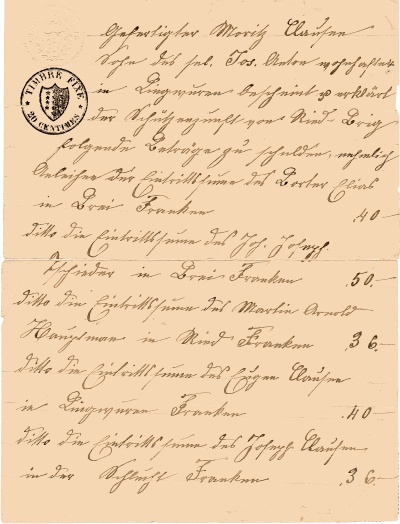 TIMBRE FIXE
20 CENTIMES
Gefertigter Moritz Clausen
Sohn des sel. Jos. Anton wohnhafter
in Lingwuren bescheint u erklärt
der Schützenzunft von Ried-Brig
folgende Beträge zu schulden, nehmlich
Anleihen der Eintrittssume des Borter Elias
in Brei Franken .40—
ditto die Eintrittssume des Joh. Joseph
Tschieder in Brei Franken .50.—
ditto die Eintrittssume des Martin Arnold
Hauptman in Ried Franken .36.—
ditto die Eintrittssume des Eugen Clausen
in Lingwuren Franken .40—
ditto die Eintrittssume des Joseph Clausen
in der Schlucht Franken .36.—